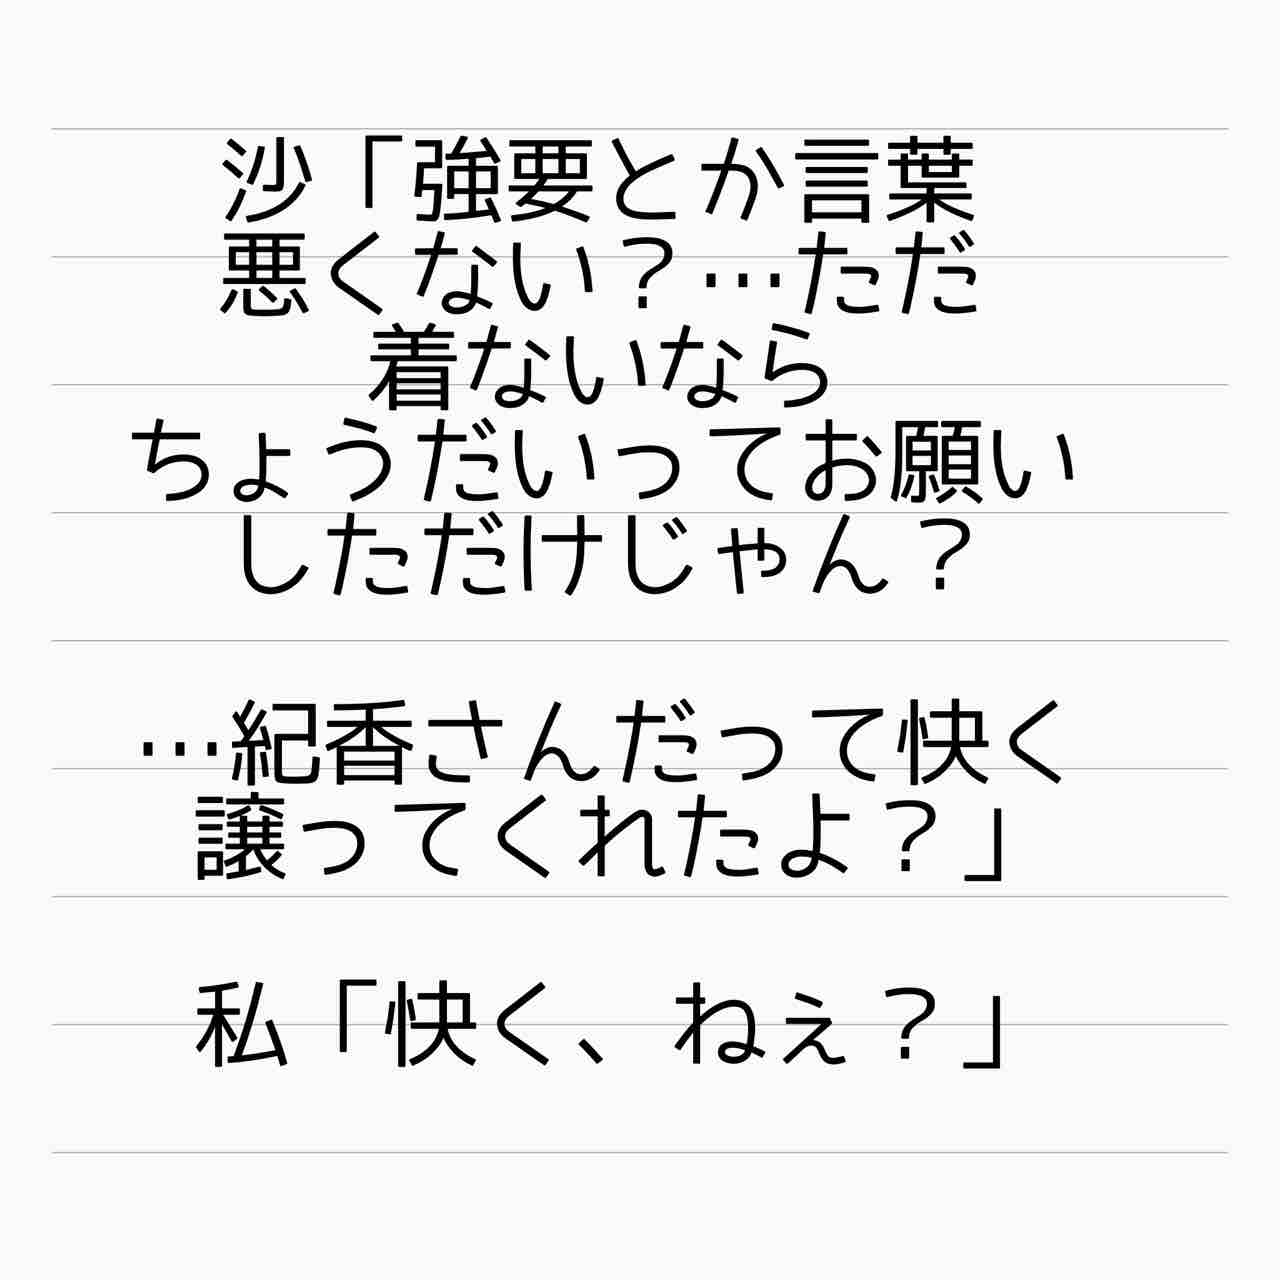 沙「強要とか言葉
悪くない？…ただ
着ないなら
ちょうだいってお願い
しただけじゃん？
…紀香さんだって快く
譲ってくれたよ？」
私「快く、ねぇ？」